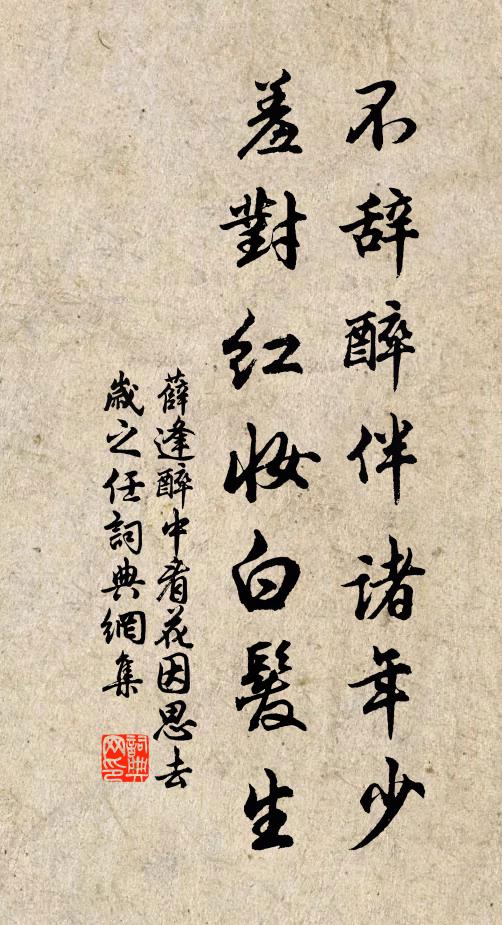 不辞醉伴诸年少
羞對红妆白髮生
薛逢醉中看花因思去
嵗之任詞典網集
詞典
网印